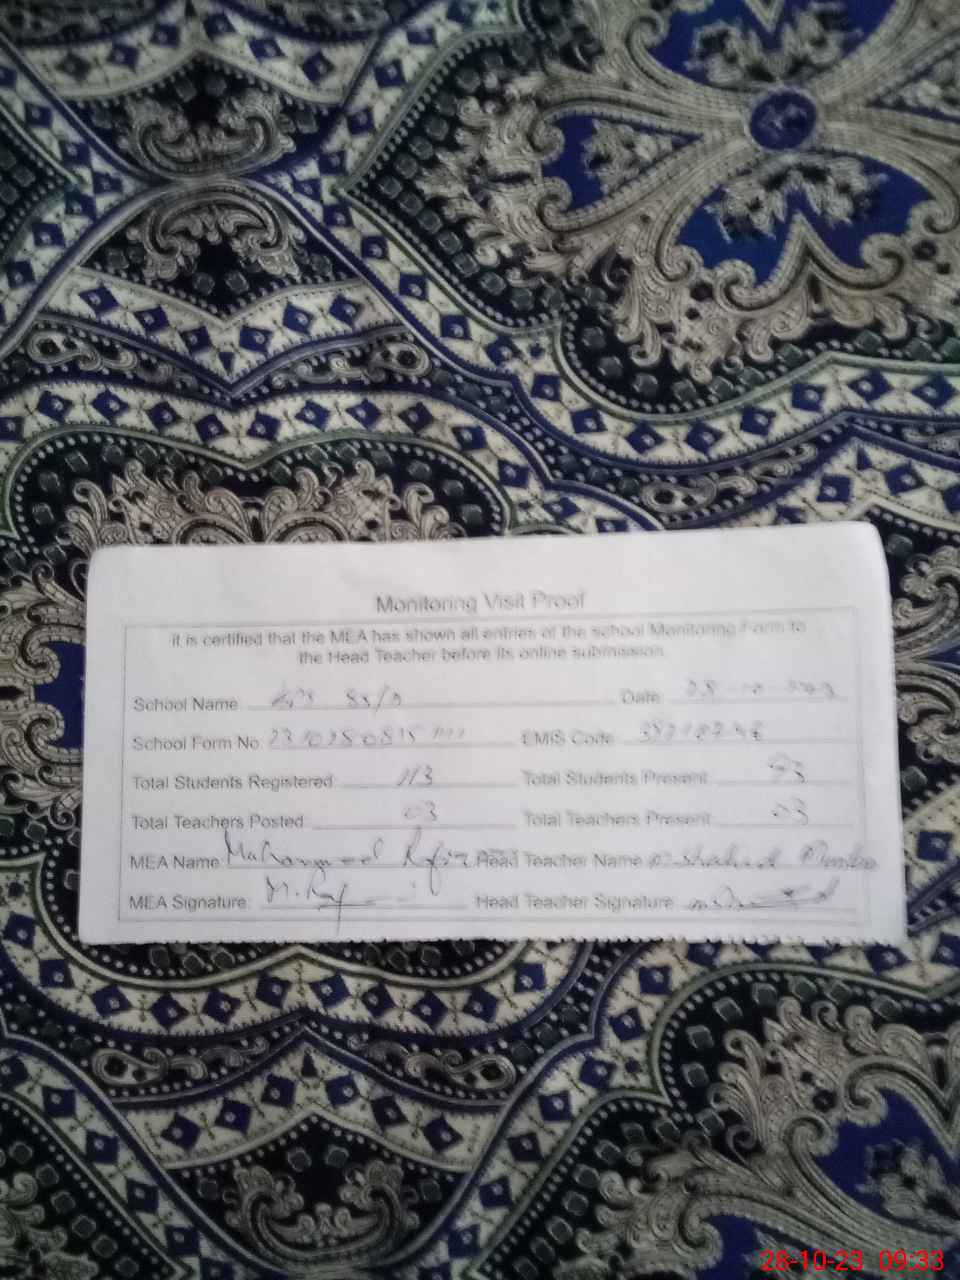 Monitoring Visit Proof
it is certified that the MEA has shown all entries of the school Monitoring Form to
the Head Teacher before its online submission.
School Name: 85/D Date: 28-10-2023
School Form No: EMIS Code:
Total Students Registered: 113 Total Students Present: 93
Total Teachers Posted: 03 Total Teachers Present: 03
MEA Name: Muhammad Head Teacher Name M. Shahid
MEA Signature: Head Teacher Signature
28-10-23 09:33